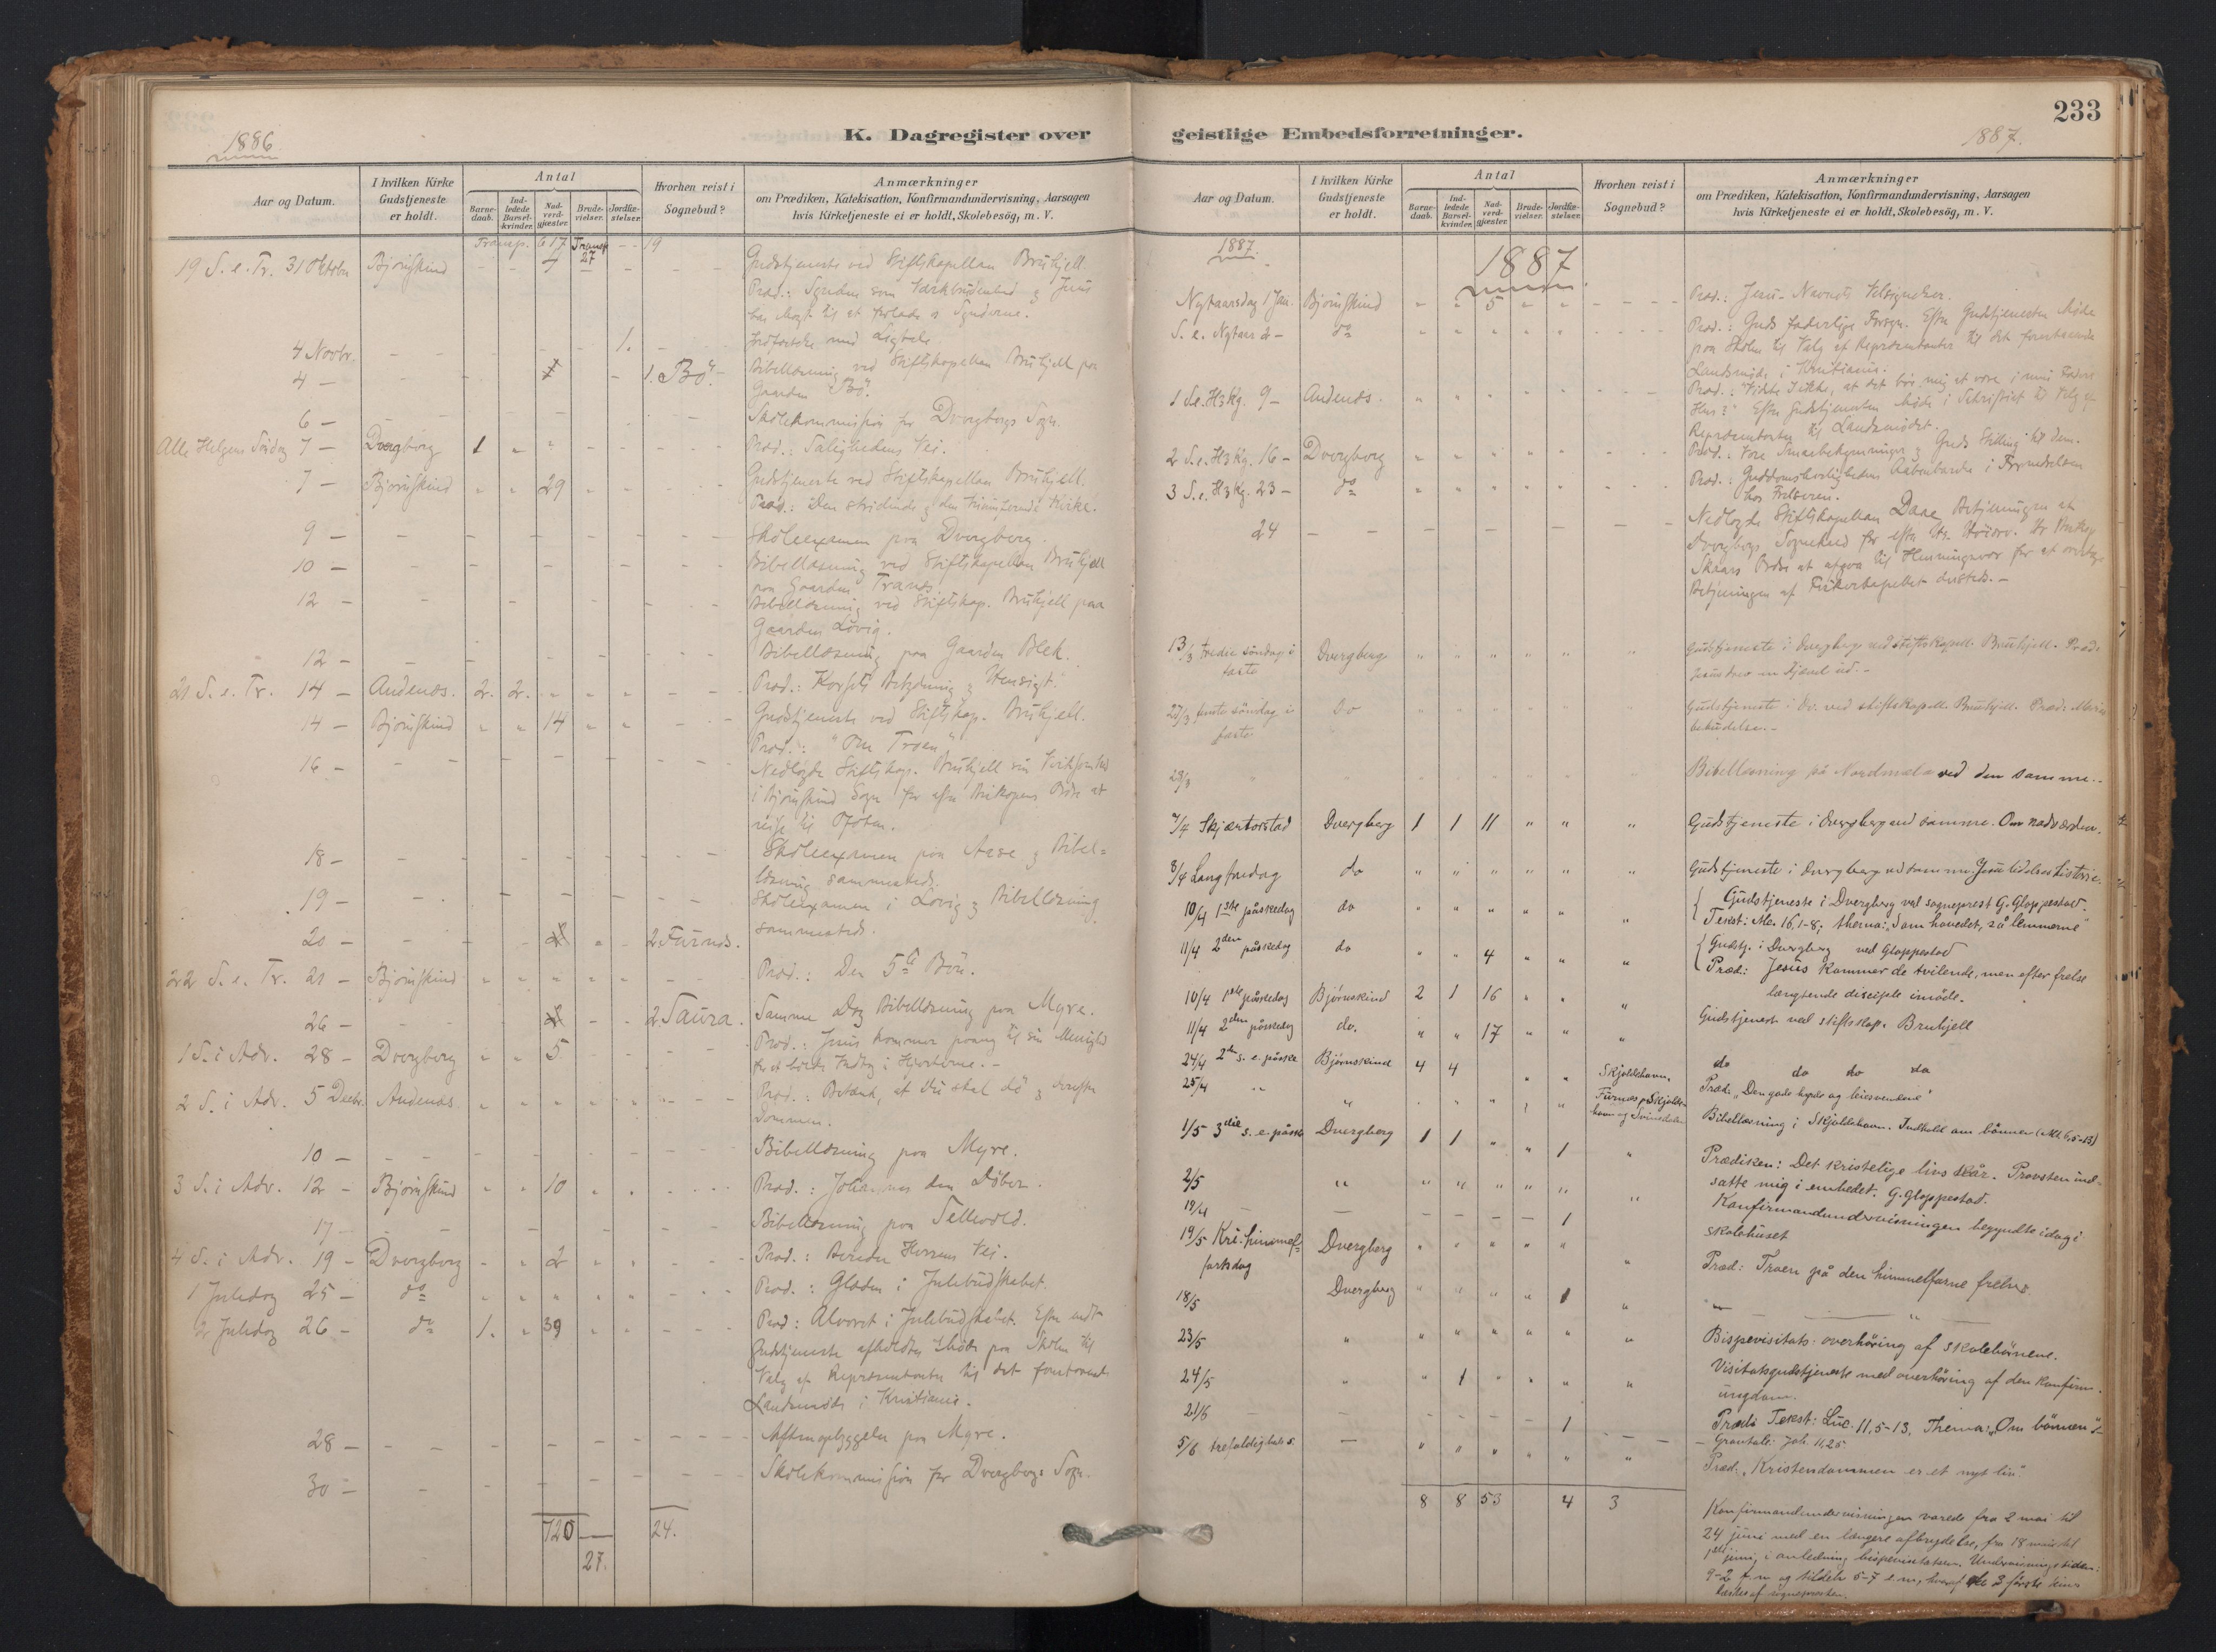 1886
K. Dagregister over
Aar og Datum.
I hvilken Kirke Gudstjeneste er holdt.
Antal
Barnedaab.
Indledede Barselkvinder.
Nadverdgjester.
Brudevielser.
Jordfæstelser.
Hvorhen reist i Sognebud?
Anmærkninger
om Prædiken, Katekisation, Konfirmandundervisning, Aarsagen
hvis Kirketjeneste ei er holdt, Skolebesøg, m. V.
Transp. 617 Transp 27 - - 19
19 S. e. Tr. 31 Oktober Bjørnskind - - 4 - - - Gudstjeneste ved Stiftskapellan Bruhjell
har Magt til at forlade os Synderne.
4 Novbr. - - - - 1. Jordfæstelse med Ligtale
4 - 1. Bø. - Bibellæsning ved Stiftskapellan Bruhjell paa
Gaarden Bø.
6 - Skolekommission for Dverbergs Sogn.
Alle Helgens Søndag 7 - Dvergberg 1 Præd.: Salighedens Vei.
7 - Bjørnskind 29 Gudstjeneste ved Stiftskapellan Bruhjell.
Præd.: Den stridende og den triumferende Kirke.
9 - Skoleexamen paa Dvergberg.
10 - Bibellæsning ved Stiftskapellan Bruhjell
paa Gaarden Tranes.
12 - Bibellæsning ved Stiftskap. Bruhjell paa
Gaarden Lovig.
12 - Bibellæsning paa Gaarden Blek.
21 S. e. Tr. 14 - Andenæs. 2. 2. Præd.: Korsets Betydning og Hensigt.
14 - Bjørnskind 14 Gudstjeneste ved Stiftskap. Bruhjell.
Præd.: "Om Troen"
16 - Nedlagde Stiftskap. Bruhjell sin Virksomhed
i Bjørnskind Sogn for efter Biskopens Ordre at
reise til Ofoten.
18 - Skoleexamen paa Aase og Bibel=
læsning sammesteds.
19 - Skoleexamen i Lovig og Bibellæsning
sammesteds.
20 - 2 Furnæs.
22 S. e. Tr. 21 - Bjørnskind Præd.: Den 5te Bøn.
26 - 2 Saura. Samme Dag Bibellæsning paa Myre.
1 S. i Adv. 28 - Dvergberg 5 Præd.: Jesus kommer paany til sin Menighed
for at holde Indtog i Hjerterne. -
2 S. i Adv. 5 Decbr. Andenæs Præd.: Betænk, at du skal dø og derefter
Dommen.
10 - Bibellæsning paa Myre.
3 S. i Adv. 12 - Bjørnskind 10 Præd.: Johannes den Døber.
17 - Bibellæsning paa Sellevold.
4 S. i Adv. 19 - Dvergberg 2 Præd.: Bereder Herrens Vei.
1 Juledag 25 - do Præd.: Glæden i Julebudskabet.
2 Juledag 26 - do 1. 39 Præd.: Alvoret i Julebudskabet. Efter endt
Gudstjeneste afholdtes Møde paa Skolen til
Valg af Repræsentanter til det forestaaende
Landsmøde i Kristiania.
28 - Aftenopbyggelse paa Myre.
30 - Skolekommission for Dvergbergs Sogn.
720 - 27. 24.
geistlige Embedsforretninger.
233
1887.
Aar og Datum.
I hvilken Kirke Gudstjeneste er holdt.
Antal
Barnedaab.
Indledede Barselkvinder.
Nadverdgjester.
Brudevielser.
Jordfæstelser.
Hvorhen reist i Sognebud?
Anmærkninger
om Prædiken, Katekisation, Konfirmandundervisning, Aarsagen
hvis Kirketjeneste ei er holdt, Skolebesøg, m. V.
1887.
1887
Nytaarsdag 1 Jan. Bjørnskind " " 5 Præd.: Jesu-Navnets Velsignelser.
S. e. Nytaar 2 - do Præd.: Guds faderlige Forsyn. Efter Gudstjenesten Møde
paa Skolen til Valg af Repræsentanter til det forestaaende
Landsmøde i Kristiania.
1 S.e. H3kg. 9 - Andenæs. Præd.: "Vidste I ikke, at det bør mig at være i min Faders
Hus?" Efter Gudstjenesten Møde i til Valg af
Repræsentanter til Landsmødet.
2 S.e. H3kg. 16 - Dvergberg Præd.: Vore Smaabekymringer og Guds Stilling til dem.
3 S.e. H3kg. 23 - do Præd.: Guddomsherlighedens Aabenbarelse i
hos Frelseren.
24 - Nedlagde Stiftskapellan Daae Betjeningen af
Dvergbergs Sognekald for efter
Skaars Ordre at afgaa til Henningsvær for at overtage
Betjeningen af Fiskerkapellet dersteds. -
13/3 tredie søndag i faste Dvergberg Gudstjeneste i Dvergberg ved stiftskapell. Bruhjell. Præd:
Jesus drev en djævel ud. -
27/3 femte søndag i faste Do Gudstjeneste i Do. ved stiftskapell. Bruhjell. Præd: Mariæ
bebudelse. -
29/3 Bibellæsning på Nordmela ved den samme. -
7/4 Skjærtorsdad Dvergberg 1 1 11 Gudstjeneste i Dvergberg ved samme. Om nadverden.
8/4 Langfredag do Gudstjeneste i Dvergberg ved samme. Jesu lidelses historie.
10/4 1ste påskedag do Gudstjeneste i Dvergberg ved sogneprest G. Gloppestad.
Tekst: Mc. 16, 1-8; thema: "Som hovedet, så lemmerne"
11/4 2den påskedag do 4 Gudstj. i Dvergberg ved Gloppestad
Præd: Jesus kommer de tvilende, men efter frelse
længtende disciple imøde.
10/4 1ste påskedag Bjørnskind 2 1 16
11/4 2den påskedag do. 17 Gudstjenest ved stiftskap. Bruhjell
24/4 2den s. e. påske Bjørnskind 4 4 Skjoldehavn. do do do do
Præd: "Den gode hyrde og leiesvendene"
25/4 Furnæs, Skjoldehavn og Svinedalen Bibellæsning i Skjoldehavn. Indhold om bønnen (Mt. 6, 5-13)
1/5 3die s. e. påske Dvergberg 1 1 1 Prædiken: Det kristelige livs kår. Provsten ind-
satte mig i embedet. G. Gloppestad.
2/5 Konfirmandundervisningen begyndte idag i
skolehuset
19/4 1
19/5 Kri. himmelfartsdag Dvergberg Præd: Troen på den himmelfarne frelser
18/5 Dvergberg 1
23/5 Bispevisitats: overhøring af skolebørnene.
24/5 1 Visitatsgudstjeneste med overhøring af den konfirm.
ungdom.
Præd: Tekst: Luc. 11, 5-13. Thema: "Om bønnen"
21/5 1 Gravtale: Joh. 11,25
5/6 trefoldigheds s. Præd: "Kristendommen er et nyt liv".
8 8 53 4 3
Konfirmandundervisningen varede fra 2 mai til
24 juni med en længere afbrydelse, fra 18 mai til
1ste juni, i anledning bispevisitatsen. Undervisningstiden:
9-2 f.m og tildels 5-7 e.m, hvoraf de 3 første